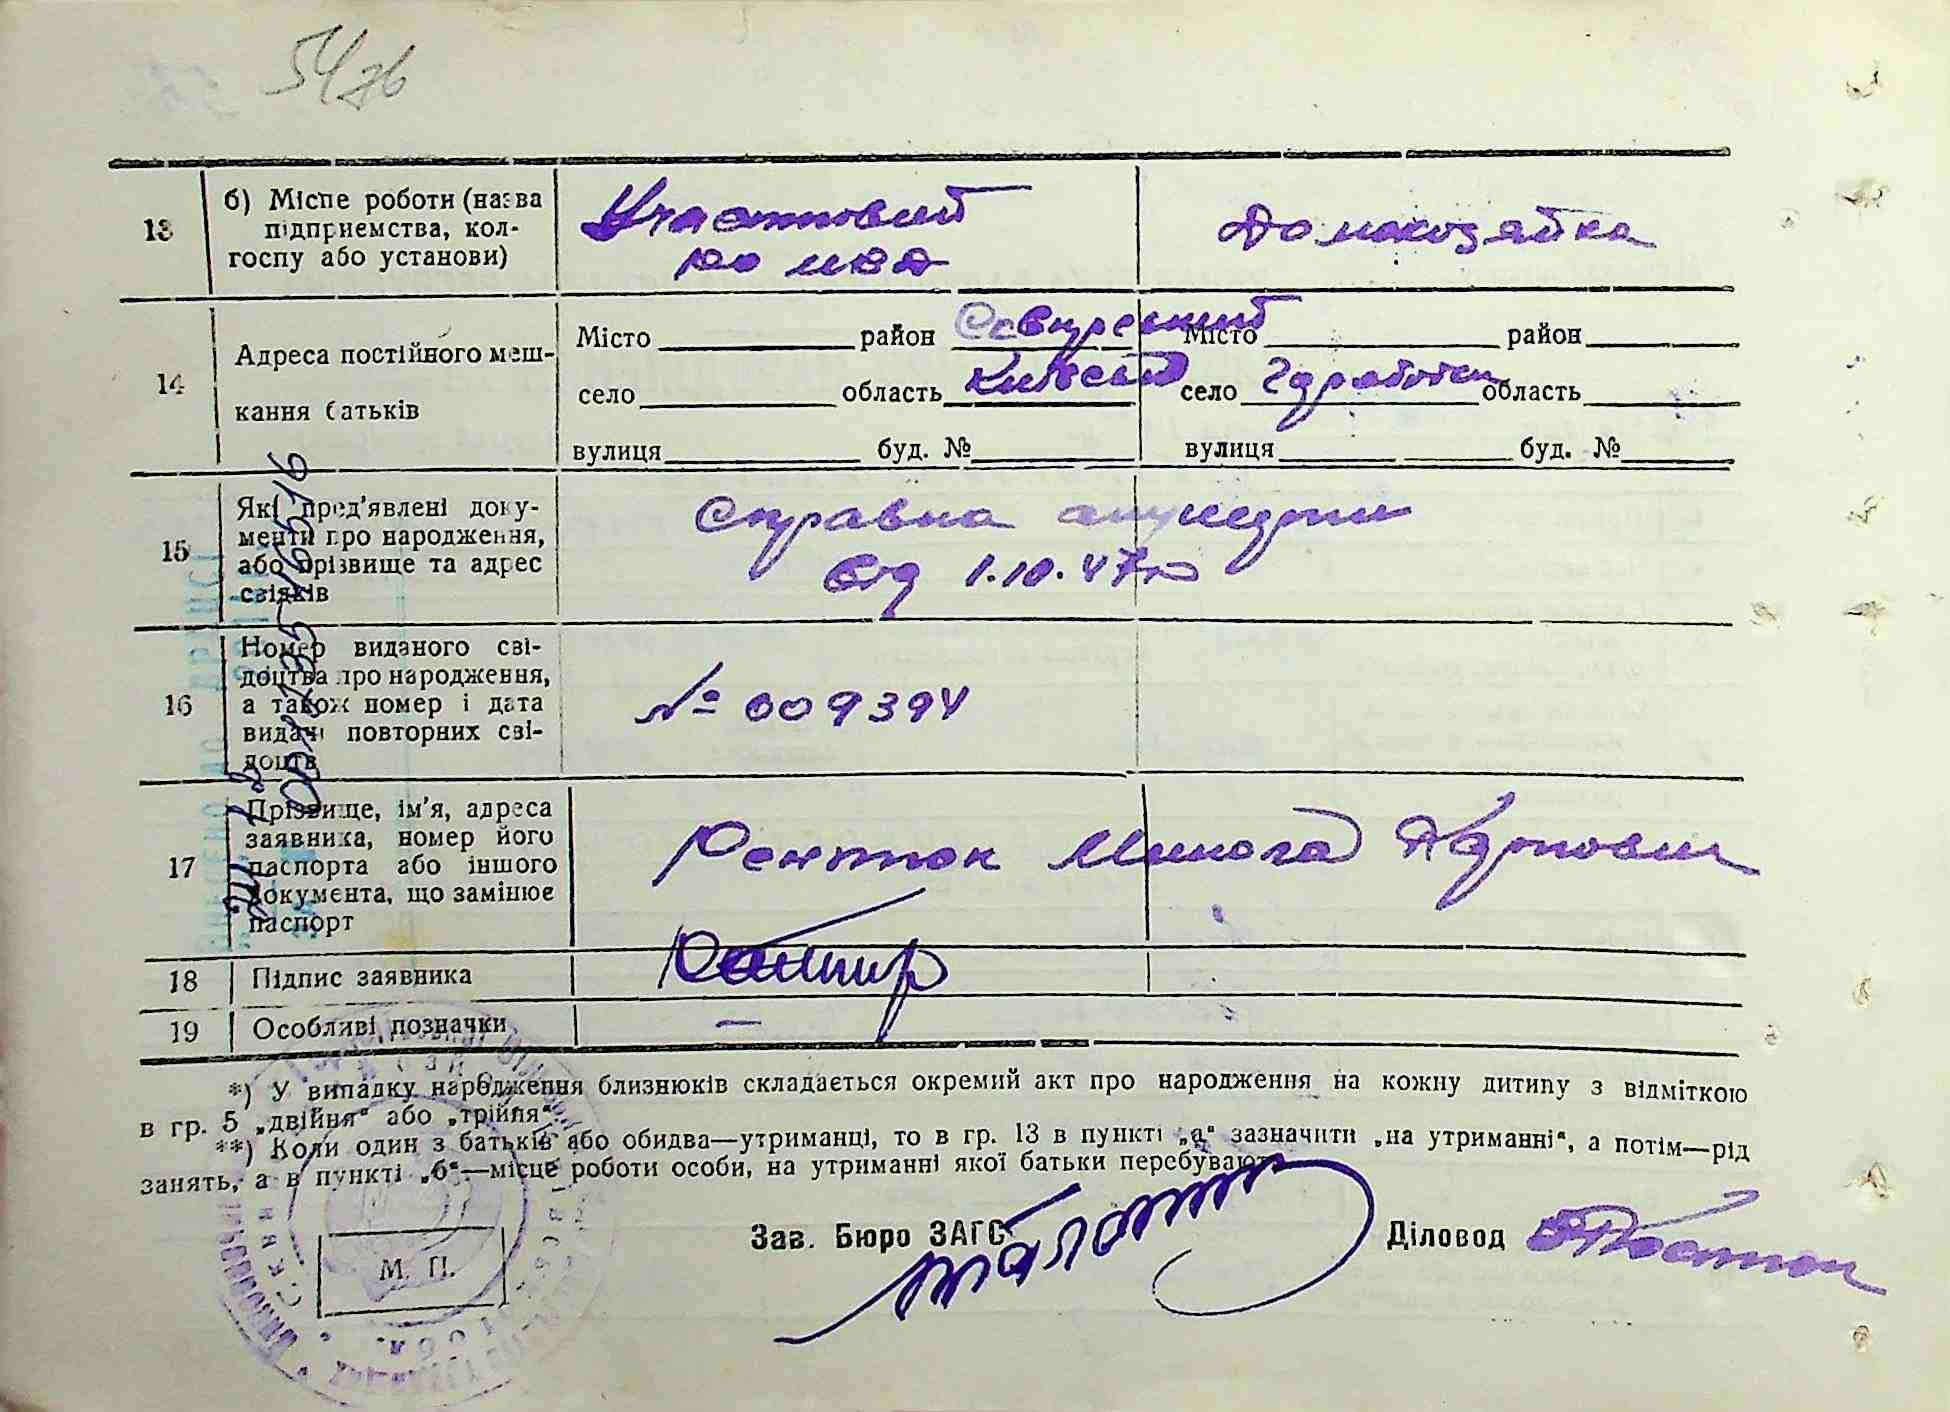 54зв
13
б) Місце роботи (назва
підприємства, кол-
госпу або установи)
Участковий
Домохозяйка
14
Адреса постійного меш-
кання батьків
Місто район Сквирський
село область Київська
вулиця буд. №
Місто район
село область
вулиця буд. №
15
Які пред'явлені доку-
менти про народження,
або прізвище та адрес
свідків
Справка акушерки
від 1.10.47 р
16
Номер виданого сві-
доцтва про народження,
а також номер і дата
видачі повторних сві-
доцтв
№ 009394
17
Прізвище, ім'я, адреса
заявника, номер його
паспорта або іншого
документа, що замінює
паспорт
Микола
18
Підпис заявника
19
Особливі позначки
—
*) У випадку народження близнюків складається окремий акт про народження на кожну дитину з відміткою
в гр. 5 „двійня“ або „трійня“.
**) Коли один з батьків або обидва—утриманці, то в гр. 13 в пункті „а“ зазначити „на утриманні“, а потім—рід
занять, а в пункті „б“—місце роботи особи, на утриманні якої батьки перебувають.
Зав. Бюро ЗАГС
Діловод
М. П.